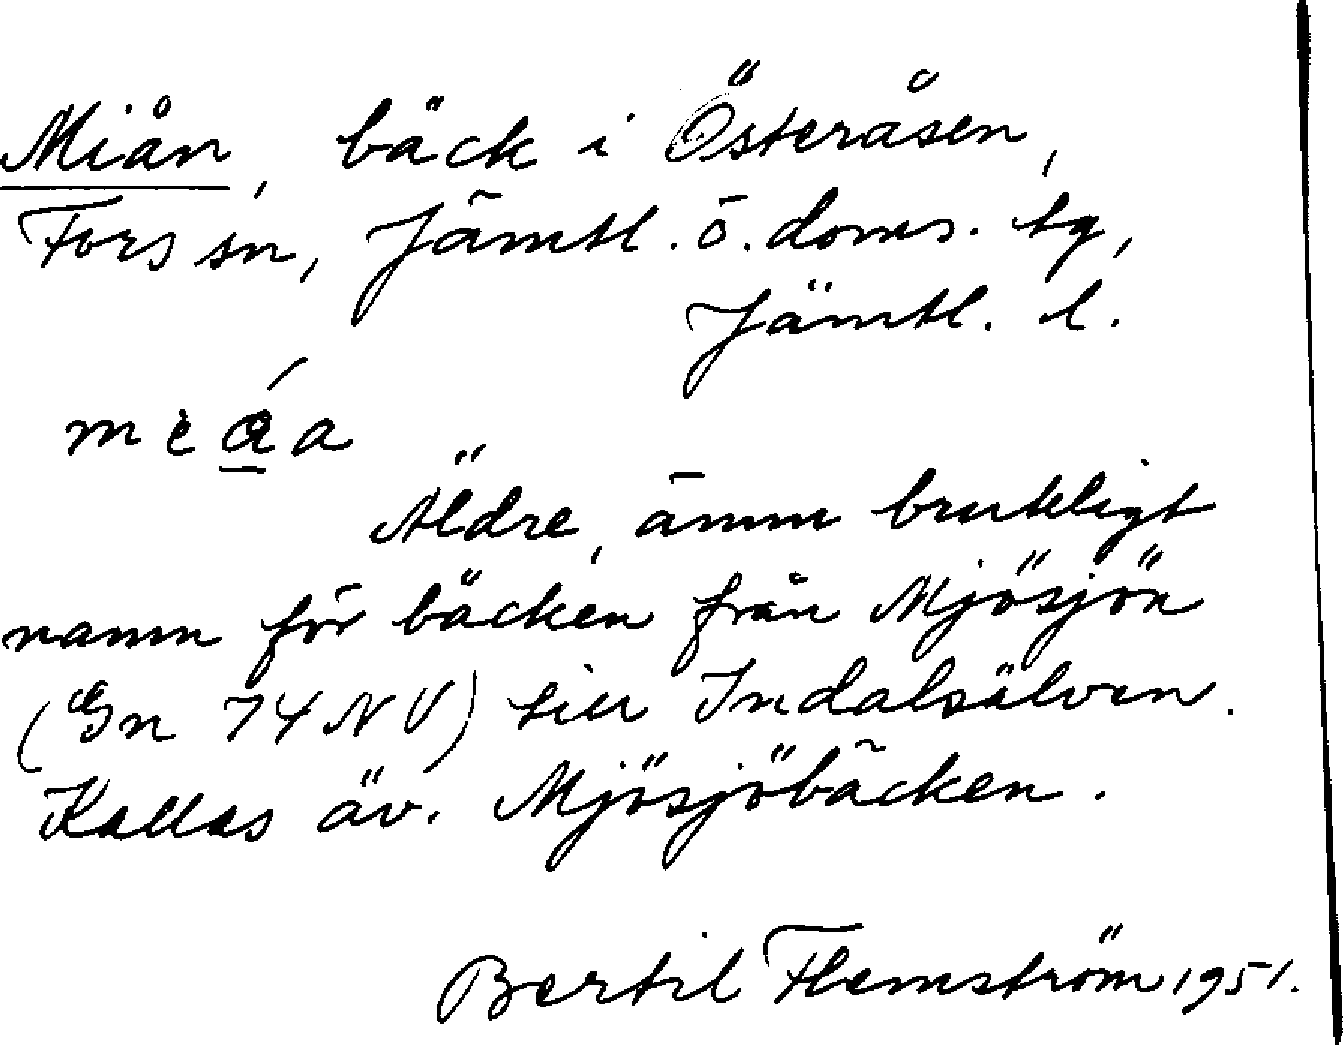 Miån, bäck i Österåsen,
Fors sn, Jämtl. ö. doms. tg,
Jämtl. l.
Äldre, ännu brukligt
namn för bäcken från Mjösjön
(Gn 74 NV) till Indalsälven.
Kallas äv. Mjösjöbäcken.
Bertil Flemström 1951.